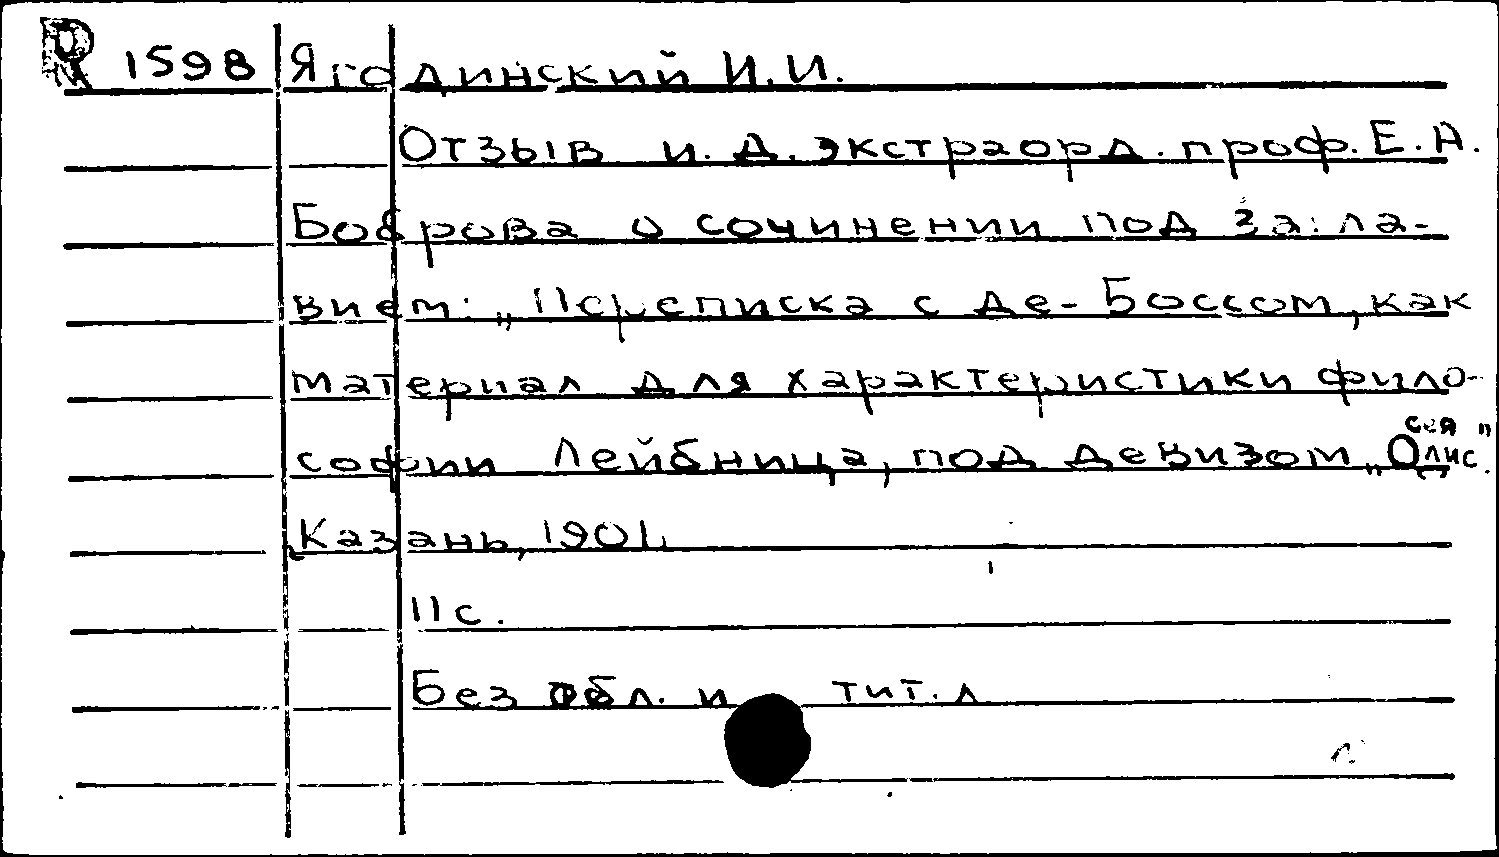 R 1598 Ягодинский И.И.
Отзыв и. д. экстраорд. проф. Е. А.
Боброва о сочинении под загла-
вием: „Переписка с де-Боссом, как
материал для характеристики фило-
софии Лейбница, под девизом „
Казань, 1901.
11 с.
Без обл. и тит. л